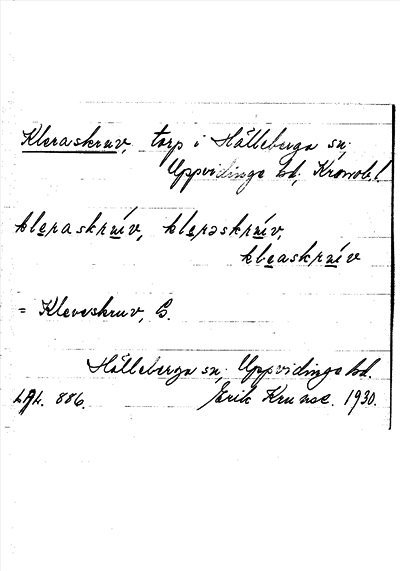 Kleraskruv, torp i Hälleberga sn,
Uppvidinge hd, Kronob. l
kleraskruív, klerəskruív,
kleaskruív
= Kleveskruv, G.
Hälleberga sn, Uppvidinge hd.
LAL. 886. Erik Kruuse. 1930.